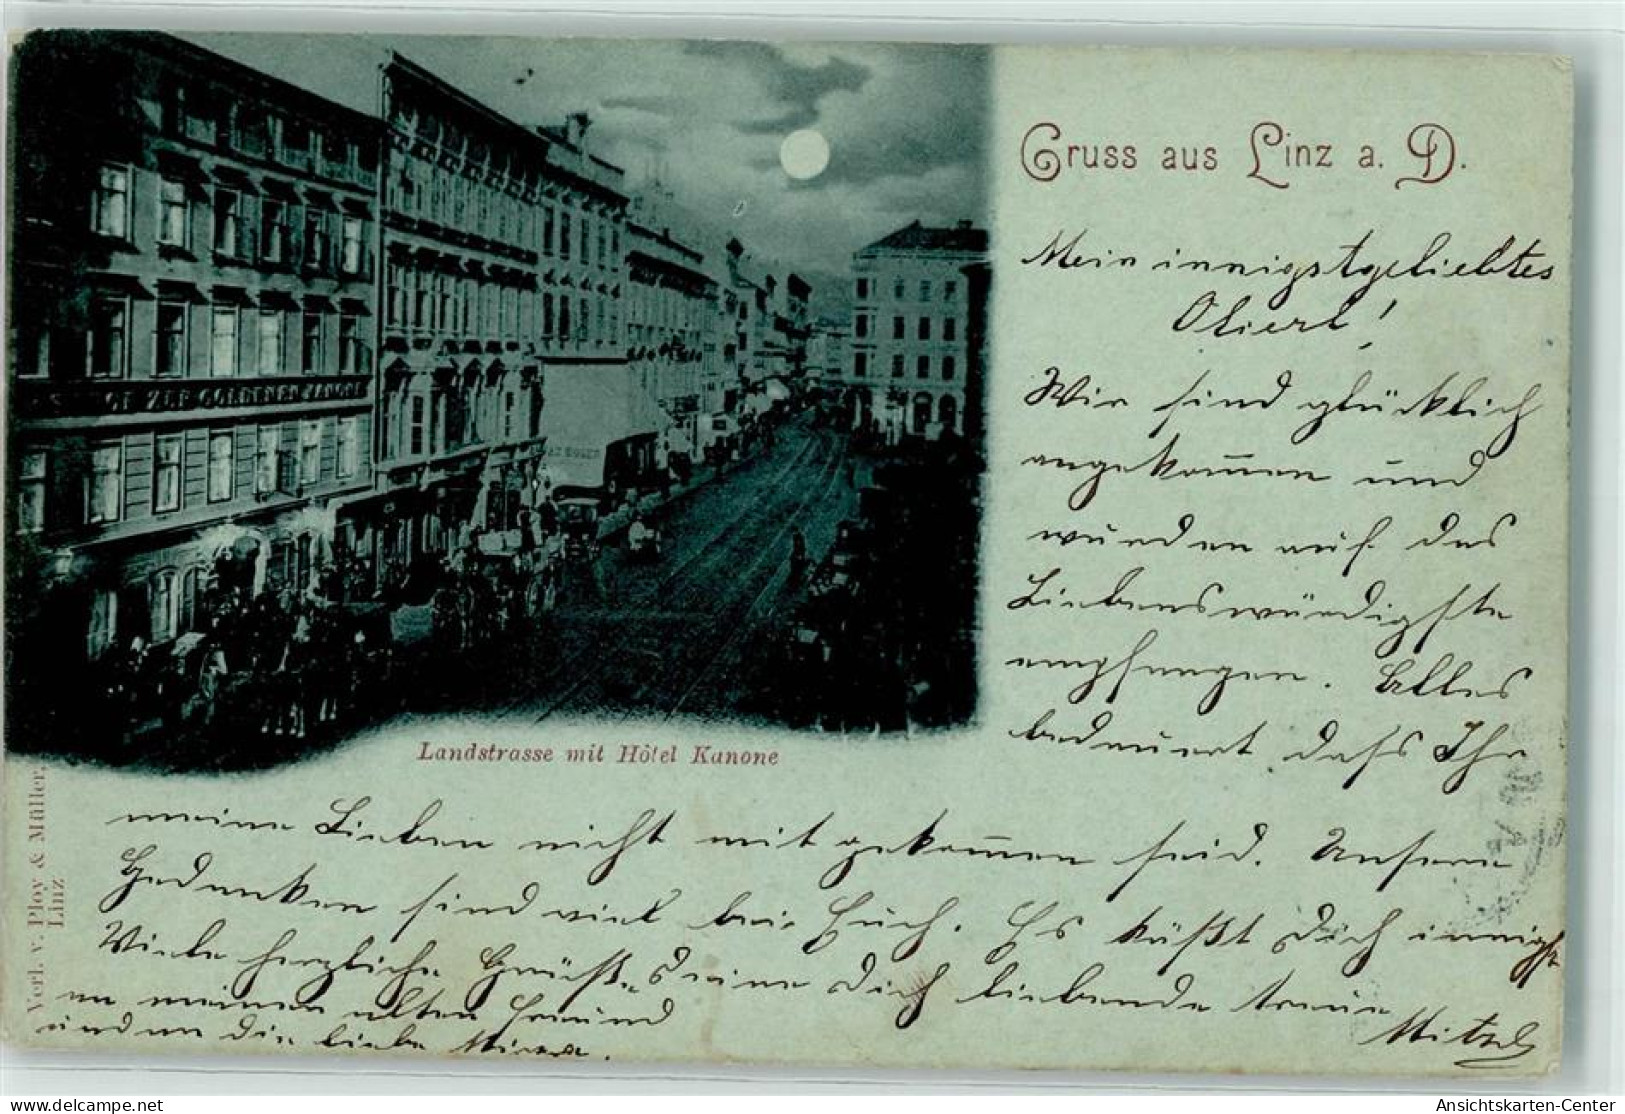 Gruss aus Linz a. D.
Mein innigstgeliebtes
Wir sind glücklich
angekommen und
wurden auf das
Liebenswürdigste
empfangen. Alles
bedauert dass Ihr
meine Lieben nicht mit gekommen seid. Unsere
Gedanken sind viel bei Euch. Es küßt Dich innigst
Viele herzliche Grüße Deine Dich liebende treue
Mitzl
an meinen alten Freund
und an die liebe
HOF ZUR GOLDENEN KANONE
Landstrasse mit Hôtel Kanone
Verl. v. Ploy & Müller,
Linz
delcampe.net
Ansichtskarten-Center